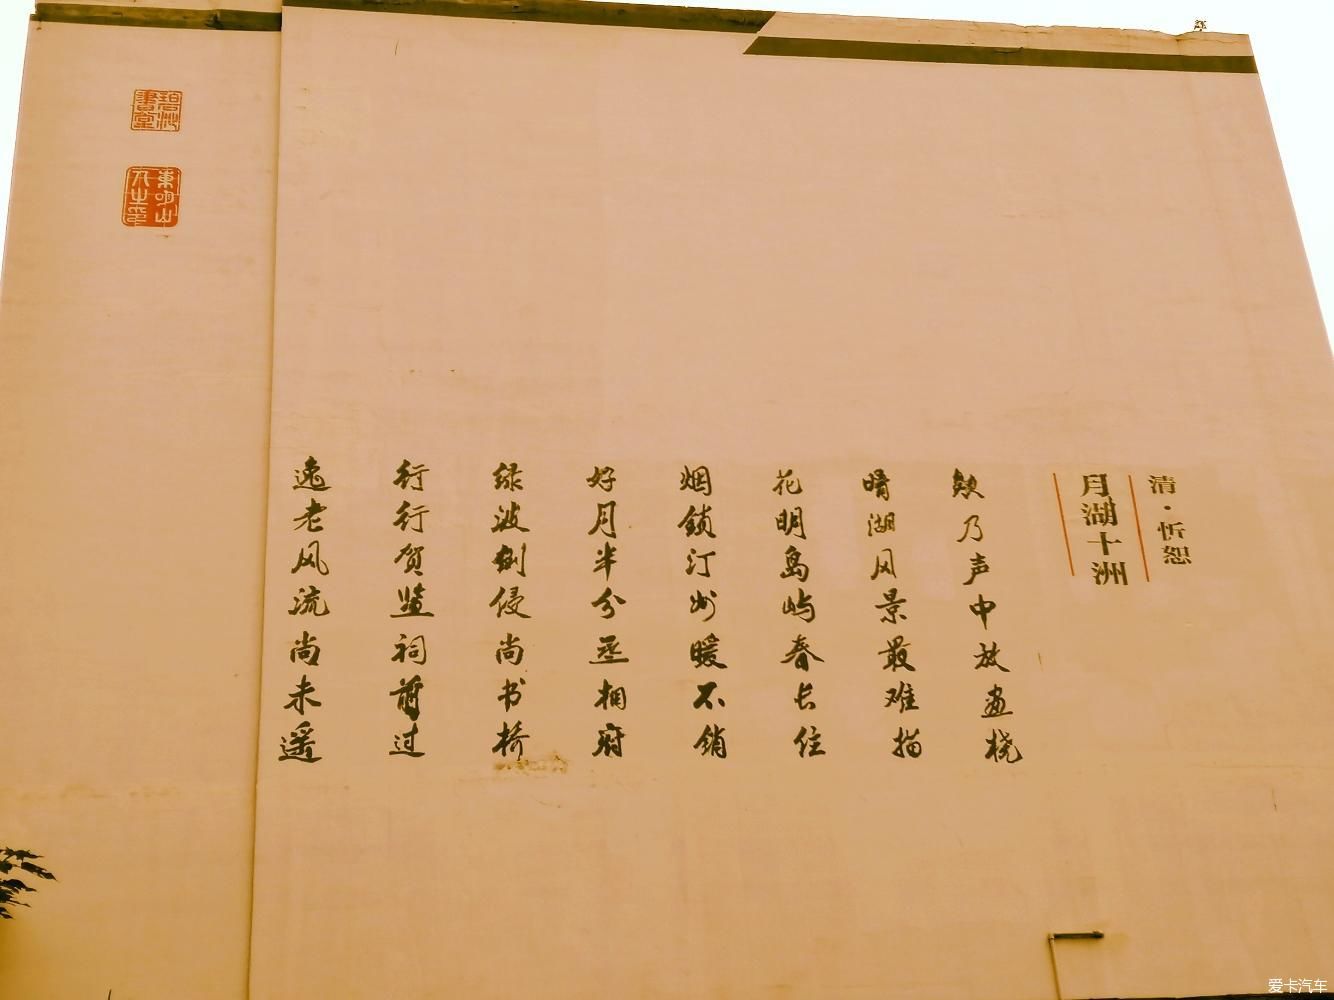 清·忻恕
月湖十洲
欸乃声中放画桡
晴湖风景最难描
花明岛屿春长住
烟锁汀州暖不销
好月半分丞相府
绿波倒侵尚书桥
行行贺监祠前过
逸老风流尚未遥
碧沚書堂
東明山人之印
爱卡汽车